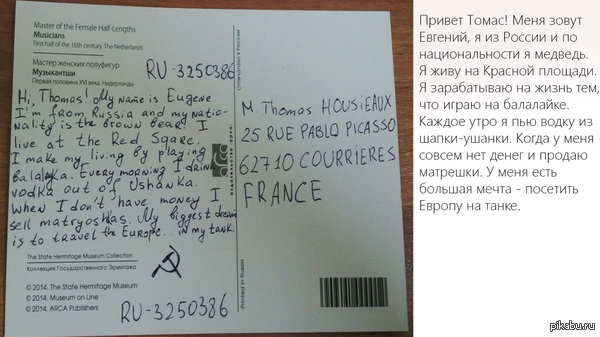 Master of the Female Half-Lengths
Musicians
First half of the 16th century, The Netherlands
Мастер женских полуфигур
Музыкантши
Первая половина XVI века. Нидерланды
RU-3250386
Hi, Thomas! My name is Eugene.
I'm from Russia and my natio-
nality is the brown bear. I
live at the Red Sqare.
I make my living by playing
balalayka. Every morning I drink
vodka out of Ushanka.
When I don't have money I
sell matryoshkas. My biggest dream
is to travel the Europe... in my tank.
The State Hermitage Museum Collection
Коллекция Государственного Эрмитажа
© 2014. The State Hermitage Museum
© 2014. Museum on Line
© 2014. ARCA Publishers
RU-3250386
Отпечатано в России
arca
издательство
Printed in Russia
M. Thomas HOUSIEAUX
25 RUE PABLO PICASSO
62710 COURRIERES
FRANCE
Привет Томас! Меня зовут
Евгений, я из России и по
национальности я медведь.
Я живу на Красной площади.
Я зарабатываю на жизнь тем,
что играю на балалайке.
Каждое утро я пью водку из
шапки-ушанки. Когда у меня
совсем нет денег и продаю
матрешки. У меня есть
большая мечта - посетить
Европу на танке.
pikabu.ru